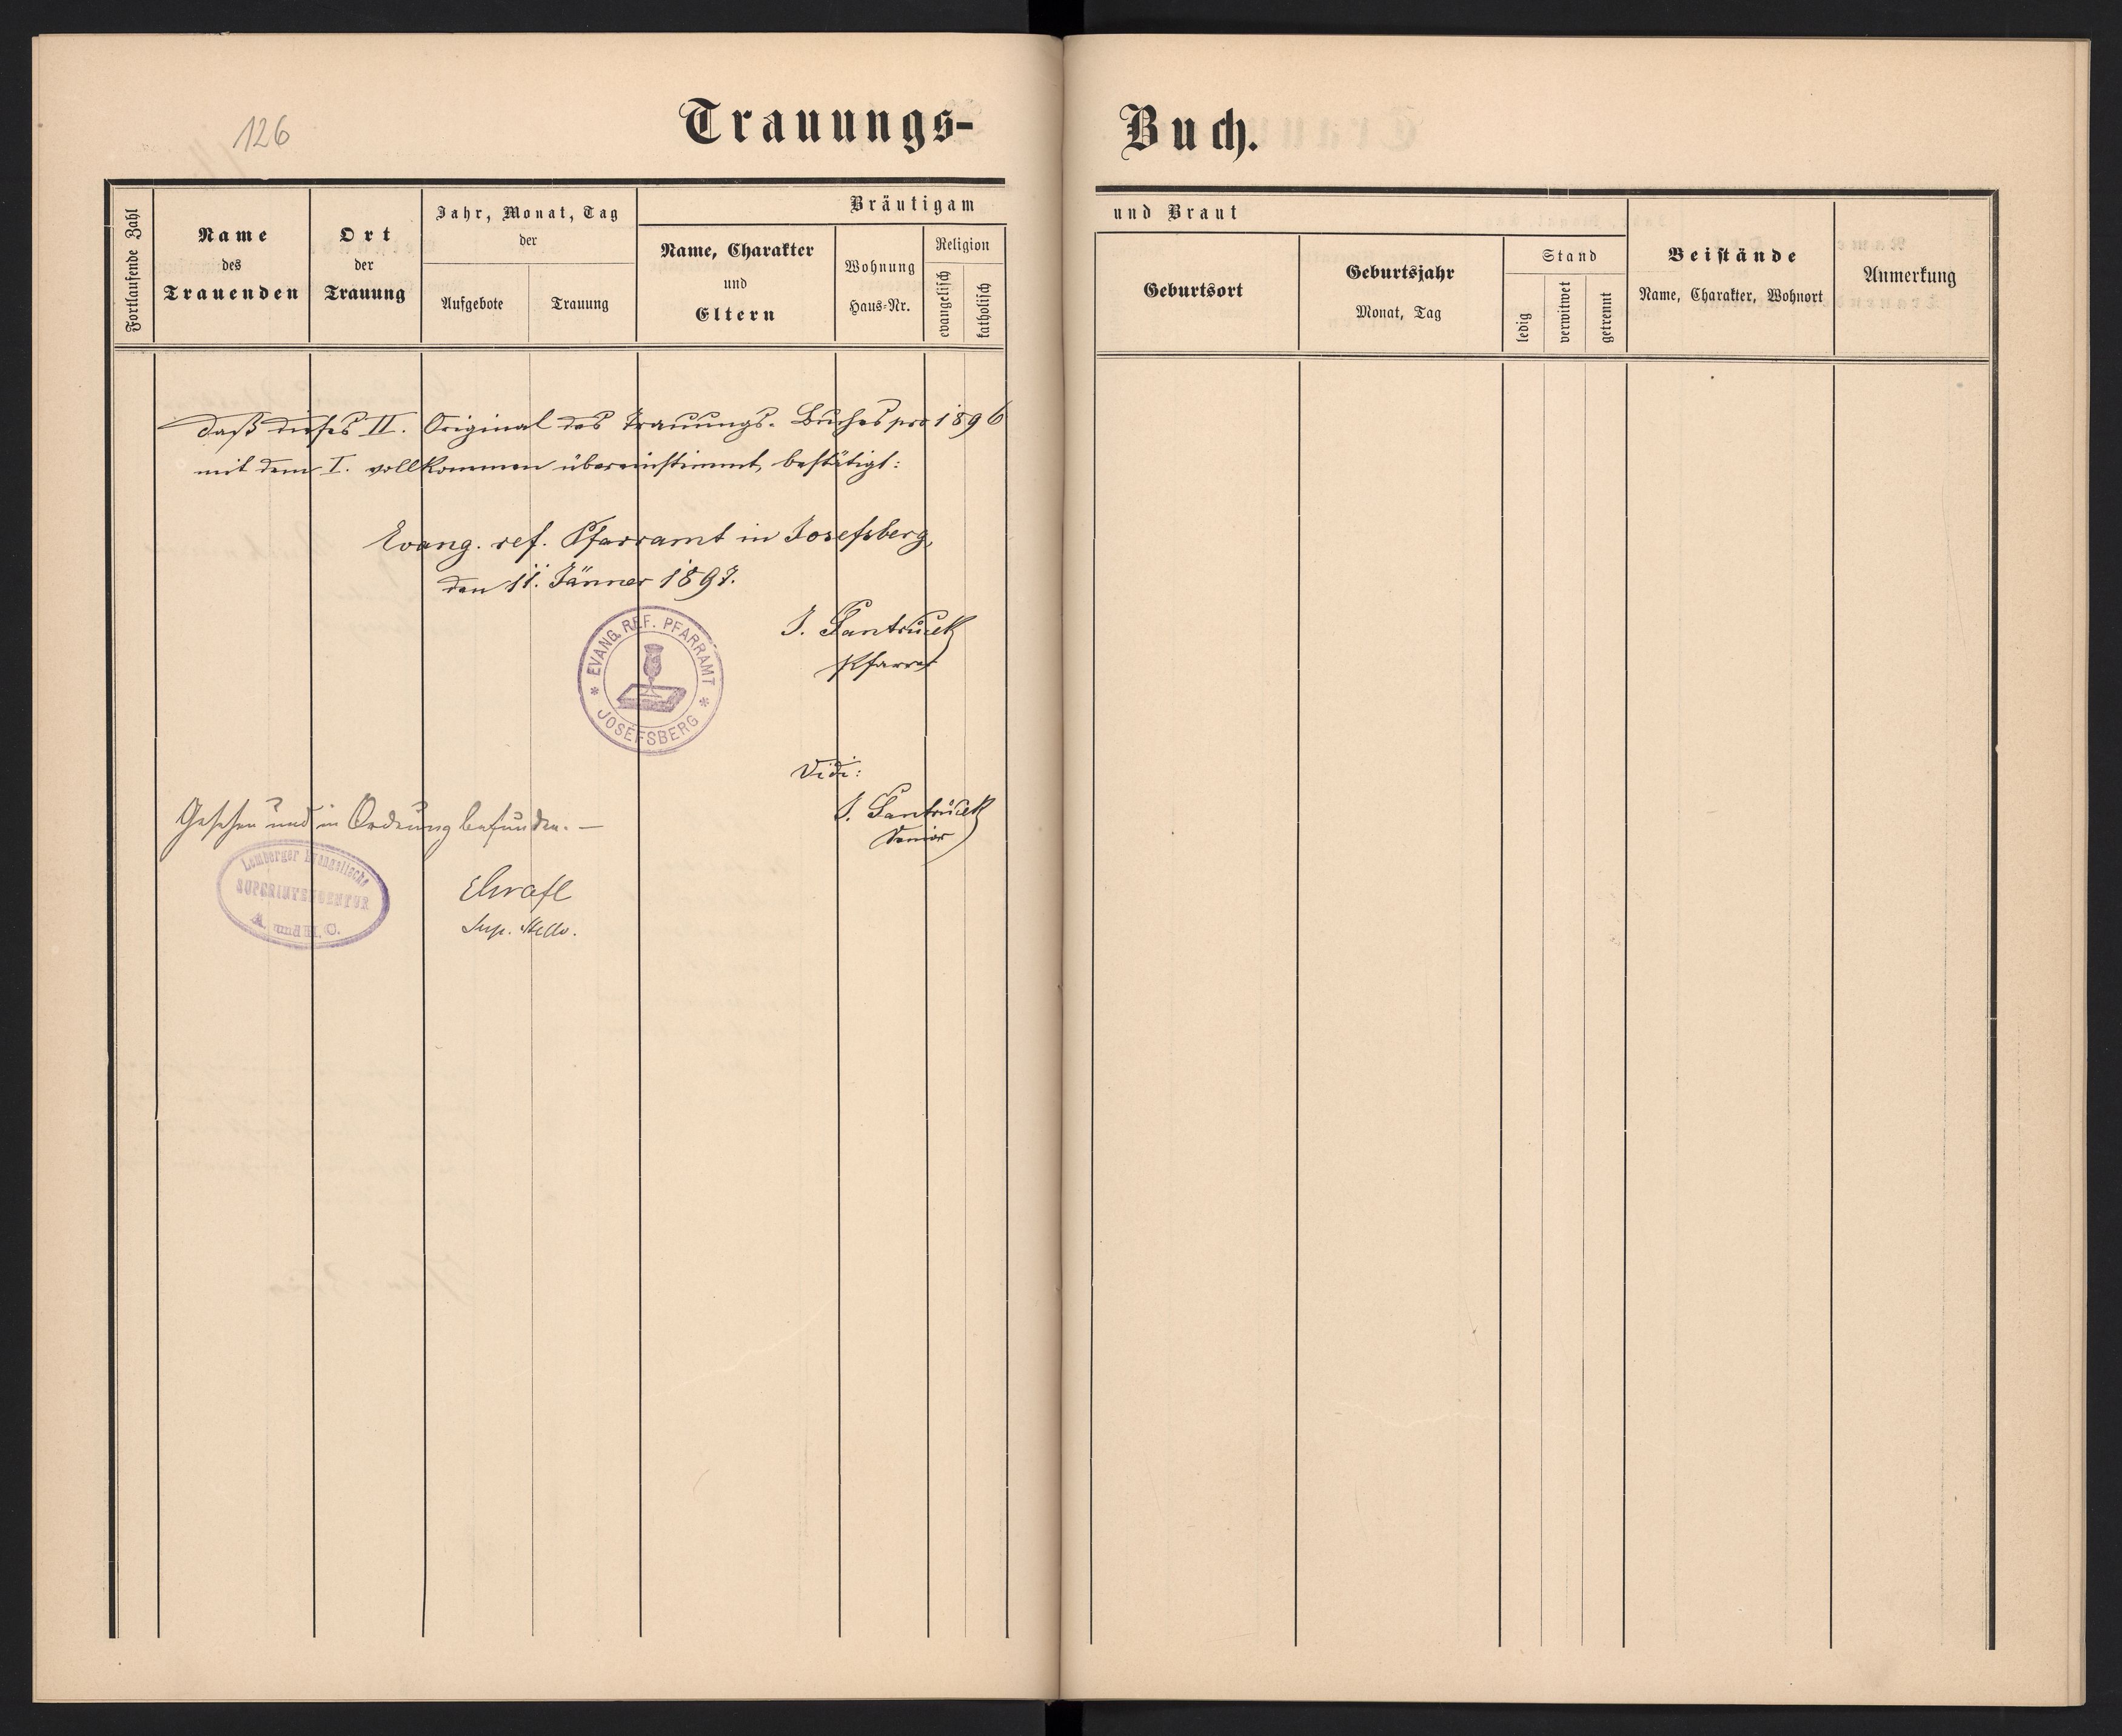 126
Trauungs-
Buch.
Fortlaufende Zahl
Name
des
Trauenden
Ort
der
Trauung
Jahr, Monat, Tag
der
Aufgebote
Trauung
Bräutigam
Name, Charakter
und
Eltern
Wohnung
Haus-Nr.
Religion
evangelisch
katholisch
und Braut
Geburtsort
Geburtsjahr
Monat, Tag
Stand
ledig
verwitwet
getrennt
Beistände
Name, Charakter, Wohnort
Anmerkung
Daß dieses II. Original des Trauungs-Buches pro 1896
mit dem I. vollkommen übereinstimmt, bestätigt:
Evang. ref. Pfarramt in Josefsberg,
den 11. Jänner 1897.
EVANG. REF. PFARRAMT
JOSEFSBERG
J. Pantůček
Pfarrer
Vidi:
J. Pantůček
Senior
Gesehen und in Ordnung befunden. —
Lemberger Evangelische
SUPERINTENDENTUR
A. und H. C.
Sup. Stellv.